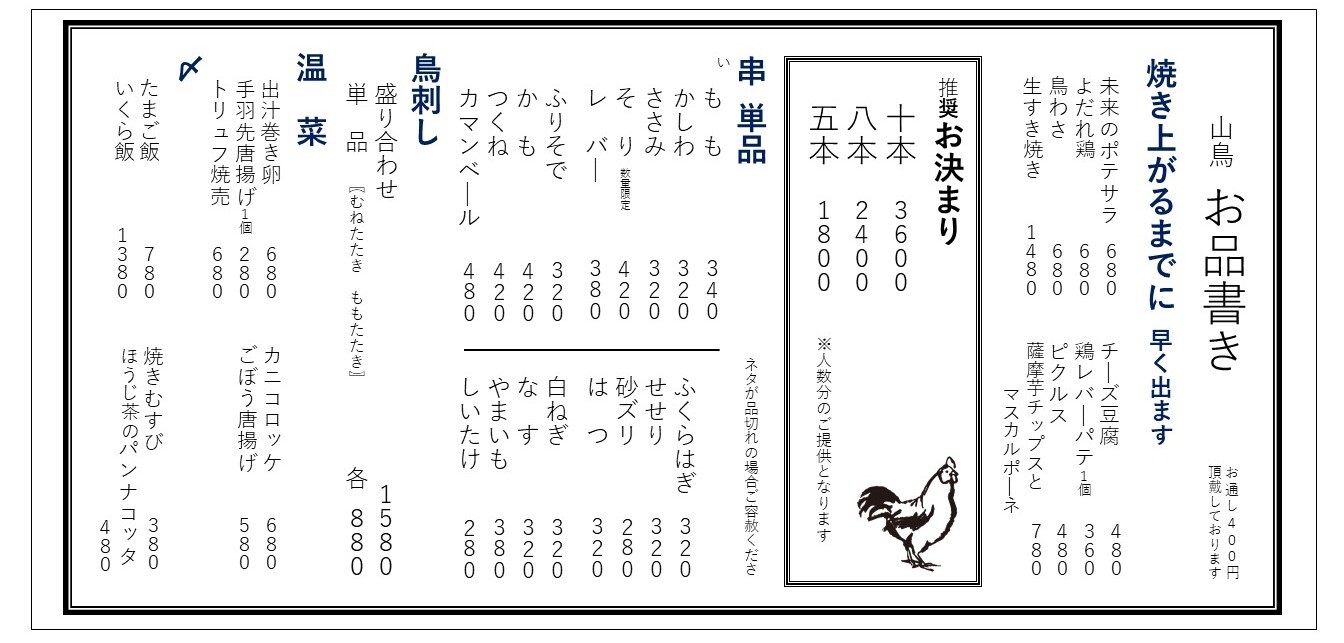 山鳥 お品書き
お通し400円
頂戴しております
焼き上がるまでに 早く出ます
未来のポテサラ 680
よだれ鶏 680
鳥わさ 680
生すき焼き 1480
チーズ豆腐 480
鶏レバーパテ1個 360
ピクルス 480
薩摩芋チップスと 780
マスカルポーネ
推奨お決まり
十本 3600
八本 2400
五本 1800
※人数分のご提供となります
串 単品
ネタが品切れの場合ご容赦くださ
い
もも 340
かしわ 320
ささみ 320
そり 数量限定 420
レバー 380
ふりそで 320
かも 420
つくね 420
カマンベール 480
ふくらはぎ 320
せせり 320
砂ズリ 280
はつ 320
白ねぎ 320
なす 320
やまいも 380
しいたけ 280
鳥刺し
盛り合わせ 1580
単品 『むねたたき ももたたき』 各 880
温菜
出汁巻き卵 680
手羽先唐揚げ1個 280
トリュフ焼売 680
カニコロッケ 680
ごぼう唐揚げ 580
〆
たまご飯 780
いくら飯 1380
焼きむすび 380
ほうじ茶のパンナコッタ
480